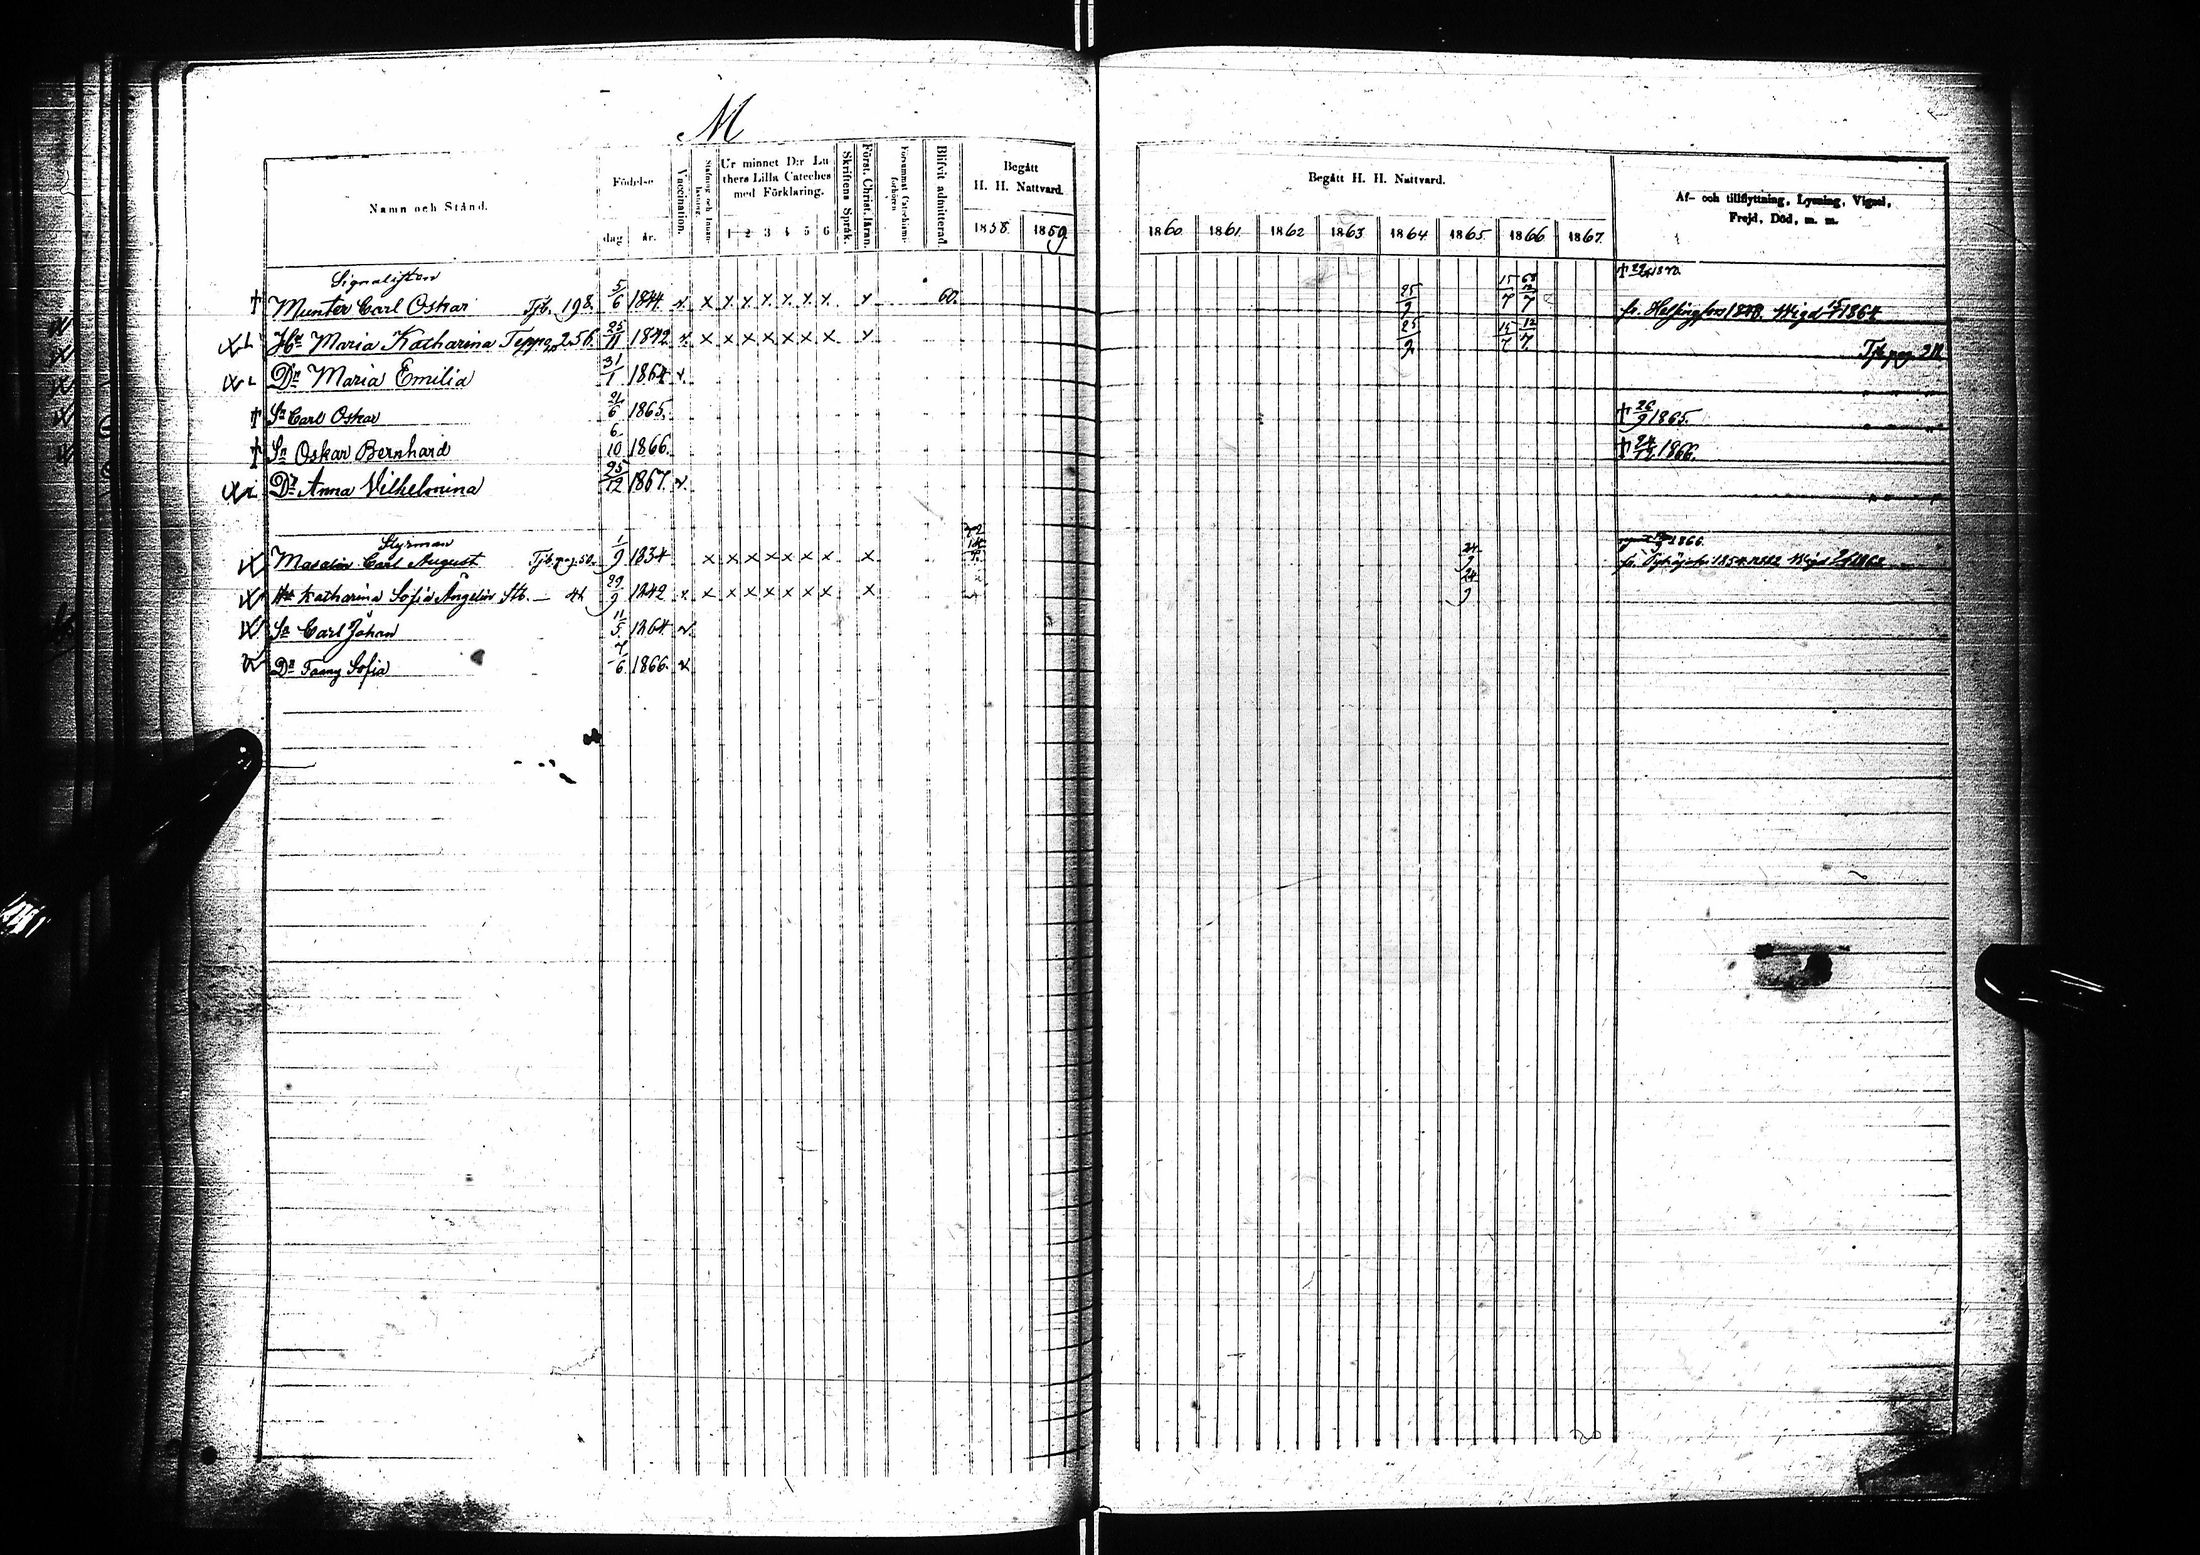 M
Namn och Stånd.
Födelse
dag
år.
Vaccination.
Stafning och Innan-läsning.
Ur minnet D:r Lu
thers Lilla Cateches
med Förklaring.
1 2 3 4 5 6
Skriftens Språk.
Först. Christ. läran.
Försummat Catechismi-förhören
Blifvit admitterad.
Begått
H. H. Nattvard.
1858. 1859.
Begått H. H. Nattvard.
1860 1861 1862 1863 1864 1865 1866 1867.
Af- och tillflyttning, Lysning, Vigsel,
Frejd, Död, m. m.
Signalisten
† Munter Carl Oskar Tjb. 198. 5/6 1844 x x x x x x x x x 60. 25/9 15/7 12/7 fr. Helsingfors Wigd 1864
Hu Maria Katharina Teppo 256. 25/11 1842 x x x x x x x x x 25/9 15/7 12/7 Tjb. pag.
Dr Maria Emilia 31/1 1864 x
† Sn Carl Oskar 21/6 1865. † 26/9 1865.
† Sn Oskar Bernhard 6/10 1866. † 24/12 1866.
Dr Anna Vilhelmina 25/12 1867. x
Styrman
Carl August Tjb. pag. 50. 1/9 1834 x x x x x x x x 24/9 fr. Nykyrko 1854 Wigd
Hu Katharina Sofia Ångelin 29/9 1842 x x x x x x x x x 24/9
Sn Carl Johan 11/5 1864 x
Dr Fanny Sofia 7/6 1866. x